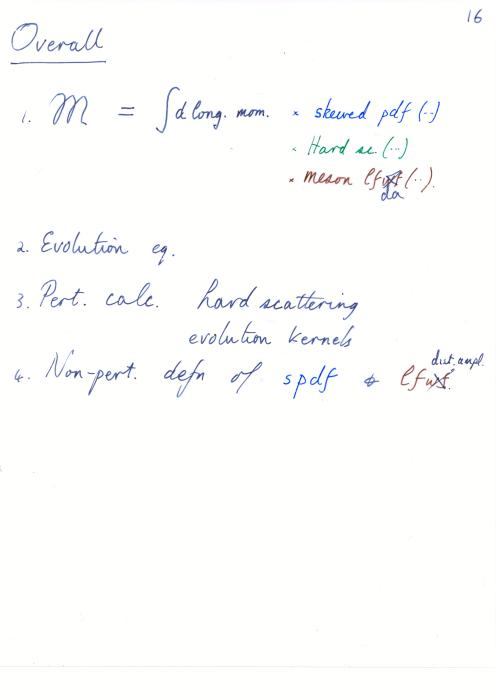 16
Overall
1. M = ∫d long. mom. × skewed pdf (..)
× Hard sc. (...)
× meson lfwf (..).
da
2. Evolution eq.
3. Pert. calc. hard scattering
evolution kernels
dist. ampl.
4. Non-pert. defn of spdf & lfwf.